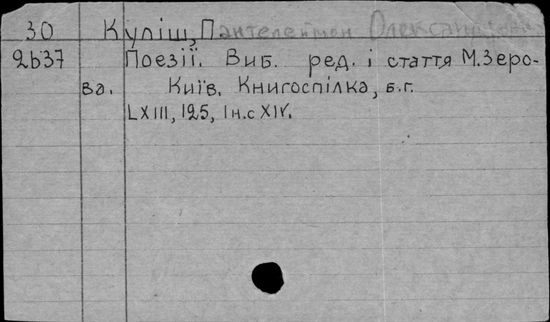 30 Куліш, Пантелеймон Олександрович
2b37 Поезії. Виб. ред. і стаття М. Зеро-
ва. Київ. Книгоспілка, б.г.
LXIII, 125, Iн.с XIV.